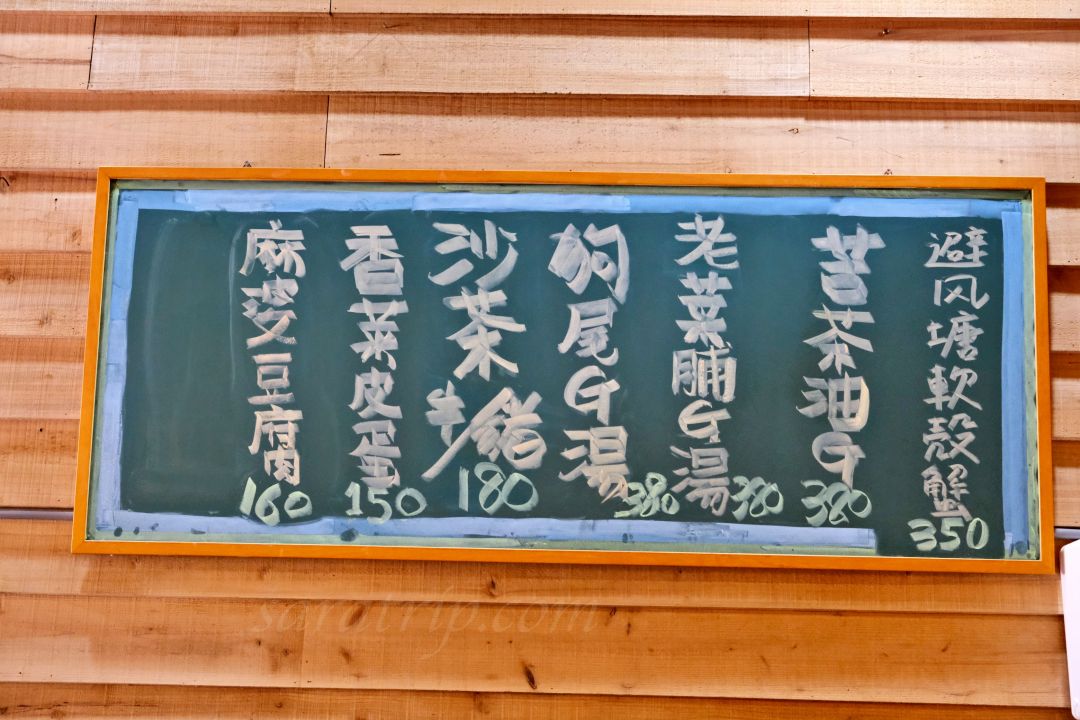 避风塘軟殼蟹 350
苦茶油G 380
老菜脯G湯 380
狗尾G湯 380
沙茶牛豬 180
香菜皮蛋 150
麻婆豆腐 160
saratrip.com